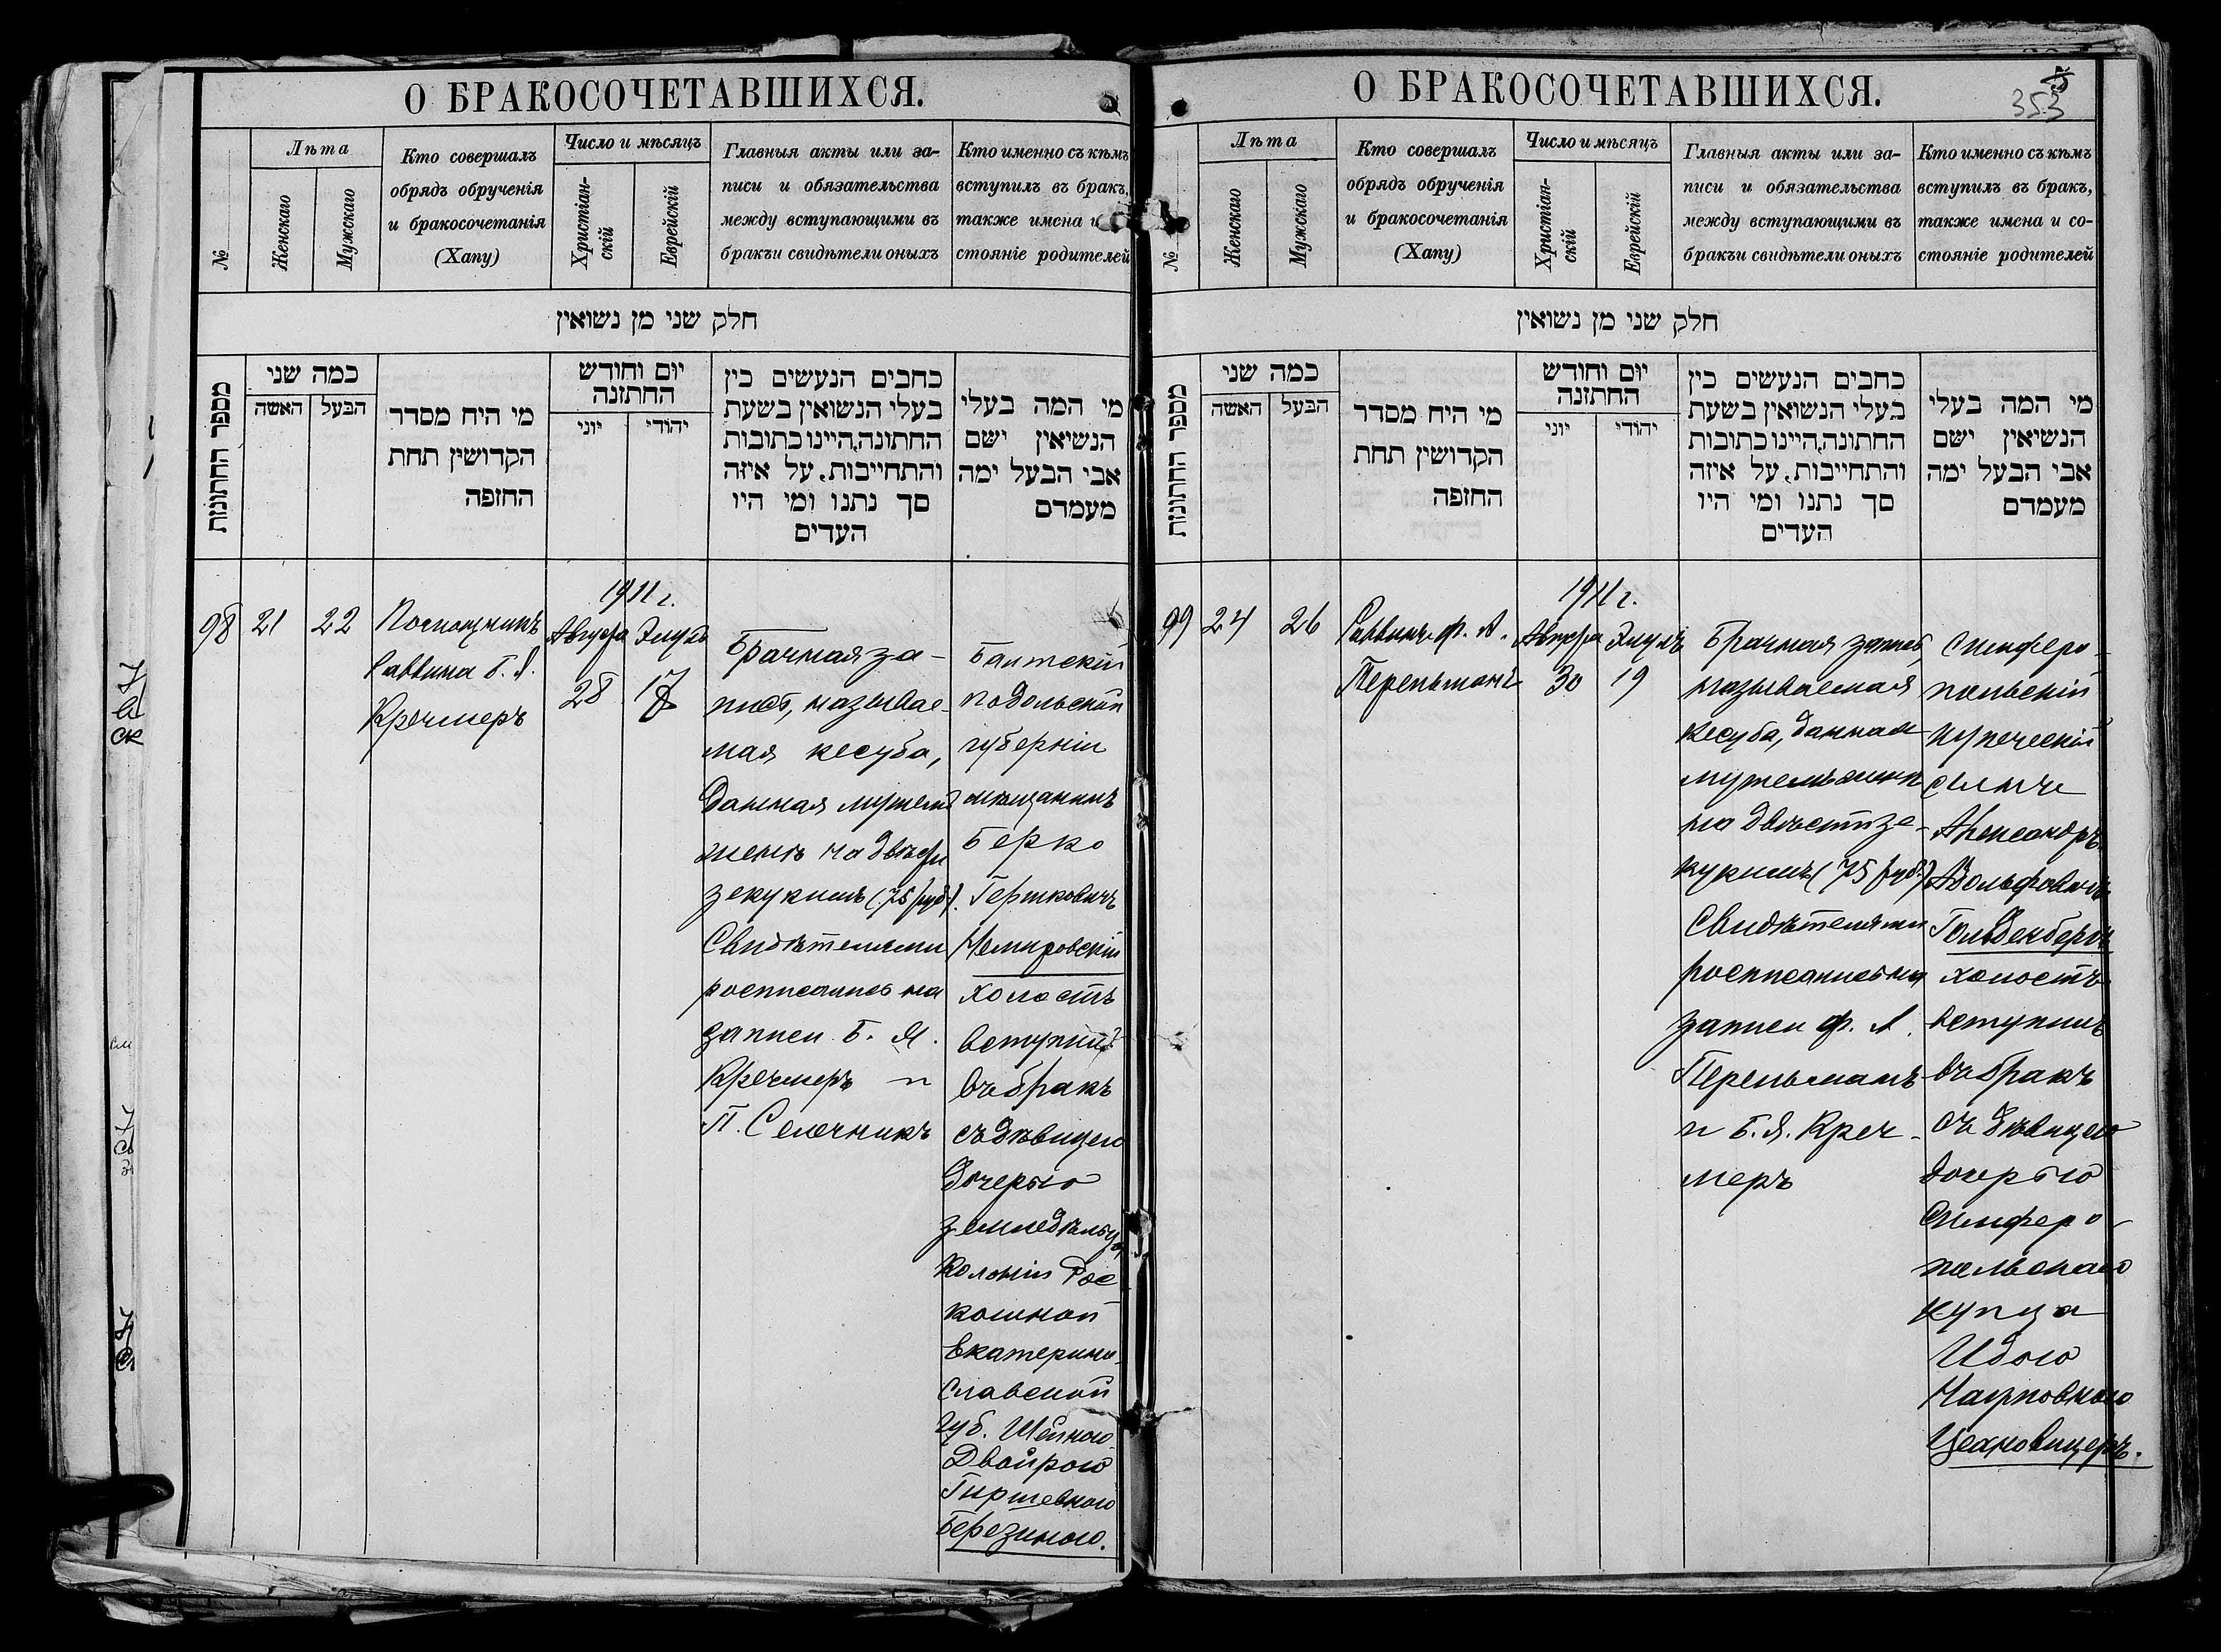 О БРАКОСОЧЕТАВШИХСЯ.
№
Лѣта
Женскаго
Мужскаго
Кто совершалъ
обрядъ обрученія
и бракосочетанія
(Хапу)
Число и мѣсяцъ
Христіан-
скій
Еврейскій
Главныя акты или за-
писи и обязательства
между вступающими въ
бракъ и свидѣтели оныхъ
Кто именно съ кѣмъ
вступилъ въ бракъ,
также имена и
стояніе родителей
חלק שני מן נשואין
מספר החתונות
כמה שני
האשה
הבעל
מי היח מסדר
הקדושין תחת
החופה
יום וחודש
החתונה
יוני
יהודי
כתבים הנעשים בין
בעלי הנשואין בשעת
החתונה,היינו כתובות
והתחייבות, על איזה
סך נתנו ומי היו
העדים
מי המה בעלי
הנשיאין ישם
אבי הבעל ימה
מעמדם
98
21
22
Помощникъ
Раввина Б. Я.
Кречмеръ
1911 г.
Августа
28
Элулъ
17
Брачная за-
пись, называе-
мая кесуба,
данная мужемъ
женѣ на двѣсти
зекукимъ (75 руб.).
Свидѣтелями
росписались на
записи Б. Я.
Кречмеръ и
П. Селечникъ
Балтскій
Подольской
губерніи
мѣщанинъ
Берко
Гершковичъ
Немировскій
холостъ
вступилъ
въ бракъ
съ дѣвицею
дочерью
земледѣльца
колоніи Рос
кошной
Екатерино-
славской
губ. Шейною
Двойрою
Гиршевною
Березиною.
О БРАКОСОЧЕТАВШИХСЯ.
353
№
Лѣта
Женскаго
Мужскаго
Кто совершалъ
обрядъ обрученія
и бракосочетанія
(Хапу)
Число и мѣсяцъ
Христіан-
скій
Еврейскій
Главныя акты или за-
писи и обязательства
между вступающими въ
бракъ и свидѣтели оныхъ
Кто именно съ кѣмъ
вступилъ въ бракъ,
также имена и со-
стояніе родителей
חלק שני מן נשואין
מספר החתונות
כמה שני
האשה
הבעל
מי היח מסדר
הקדושין תחת
החופה
יום וחודש
החתונה
יוני
יהודי
כתבים הנעשים בין
בעלי הנשואין בשעת
החתונה,היינו כתובות
והתחייבות, על איזה
סך נתנו ומי היו
העדים
מי המה בעלי
הנשיאין ישם
אבי הבעל ימה
מעמדם
99
24
26
Раввинъ Ф. Л.
Перельманъ
1911 г.
Августа
30
Элулъ
19
Брачная запись,
называемая
кесуба, данная
мужемъ женѣ
на двѣсти зе-
кукимъ (75 руб.)
Свидѣтелями
росписались на
записи Ф. Л.
Перельманъ
и Б. Я. Креч-
меръ
Симферо-
польскій
купеческій
сынъ
Александръ
Адольфовичъ
Гольденбергъ
холостъ
вступилъ
въ бракъ
съ дѣвицею
дочерью
Симферо-
польскаго
купца
Идою
Наумовною
Цехновицеръ.